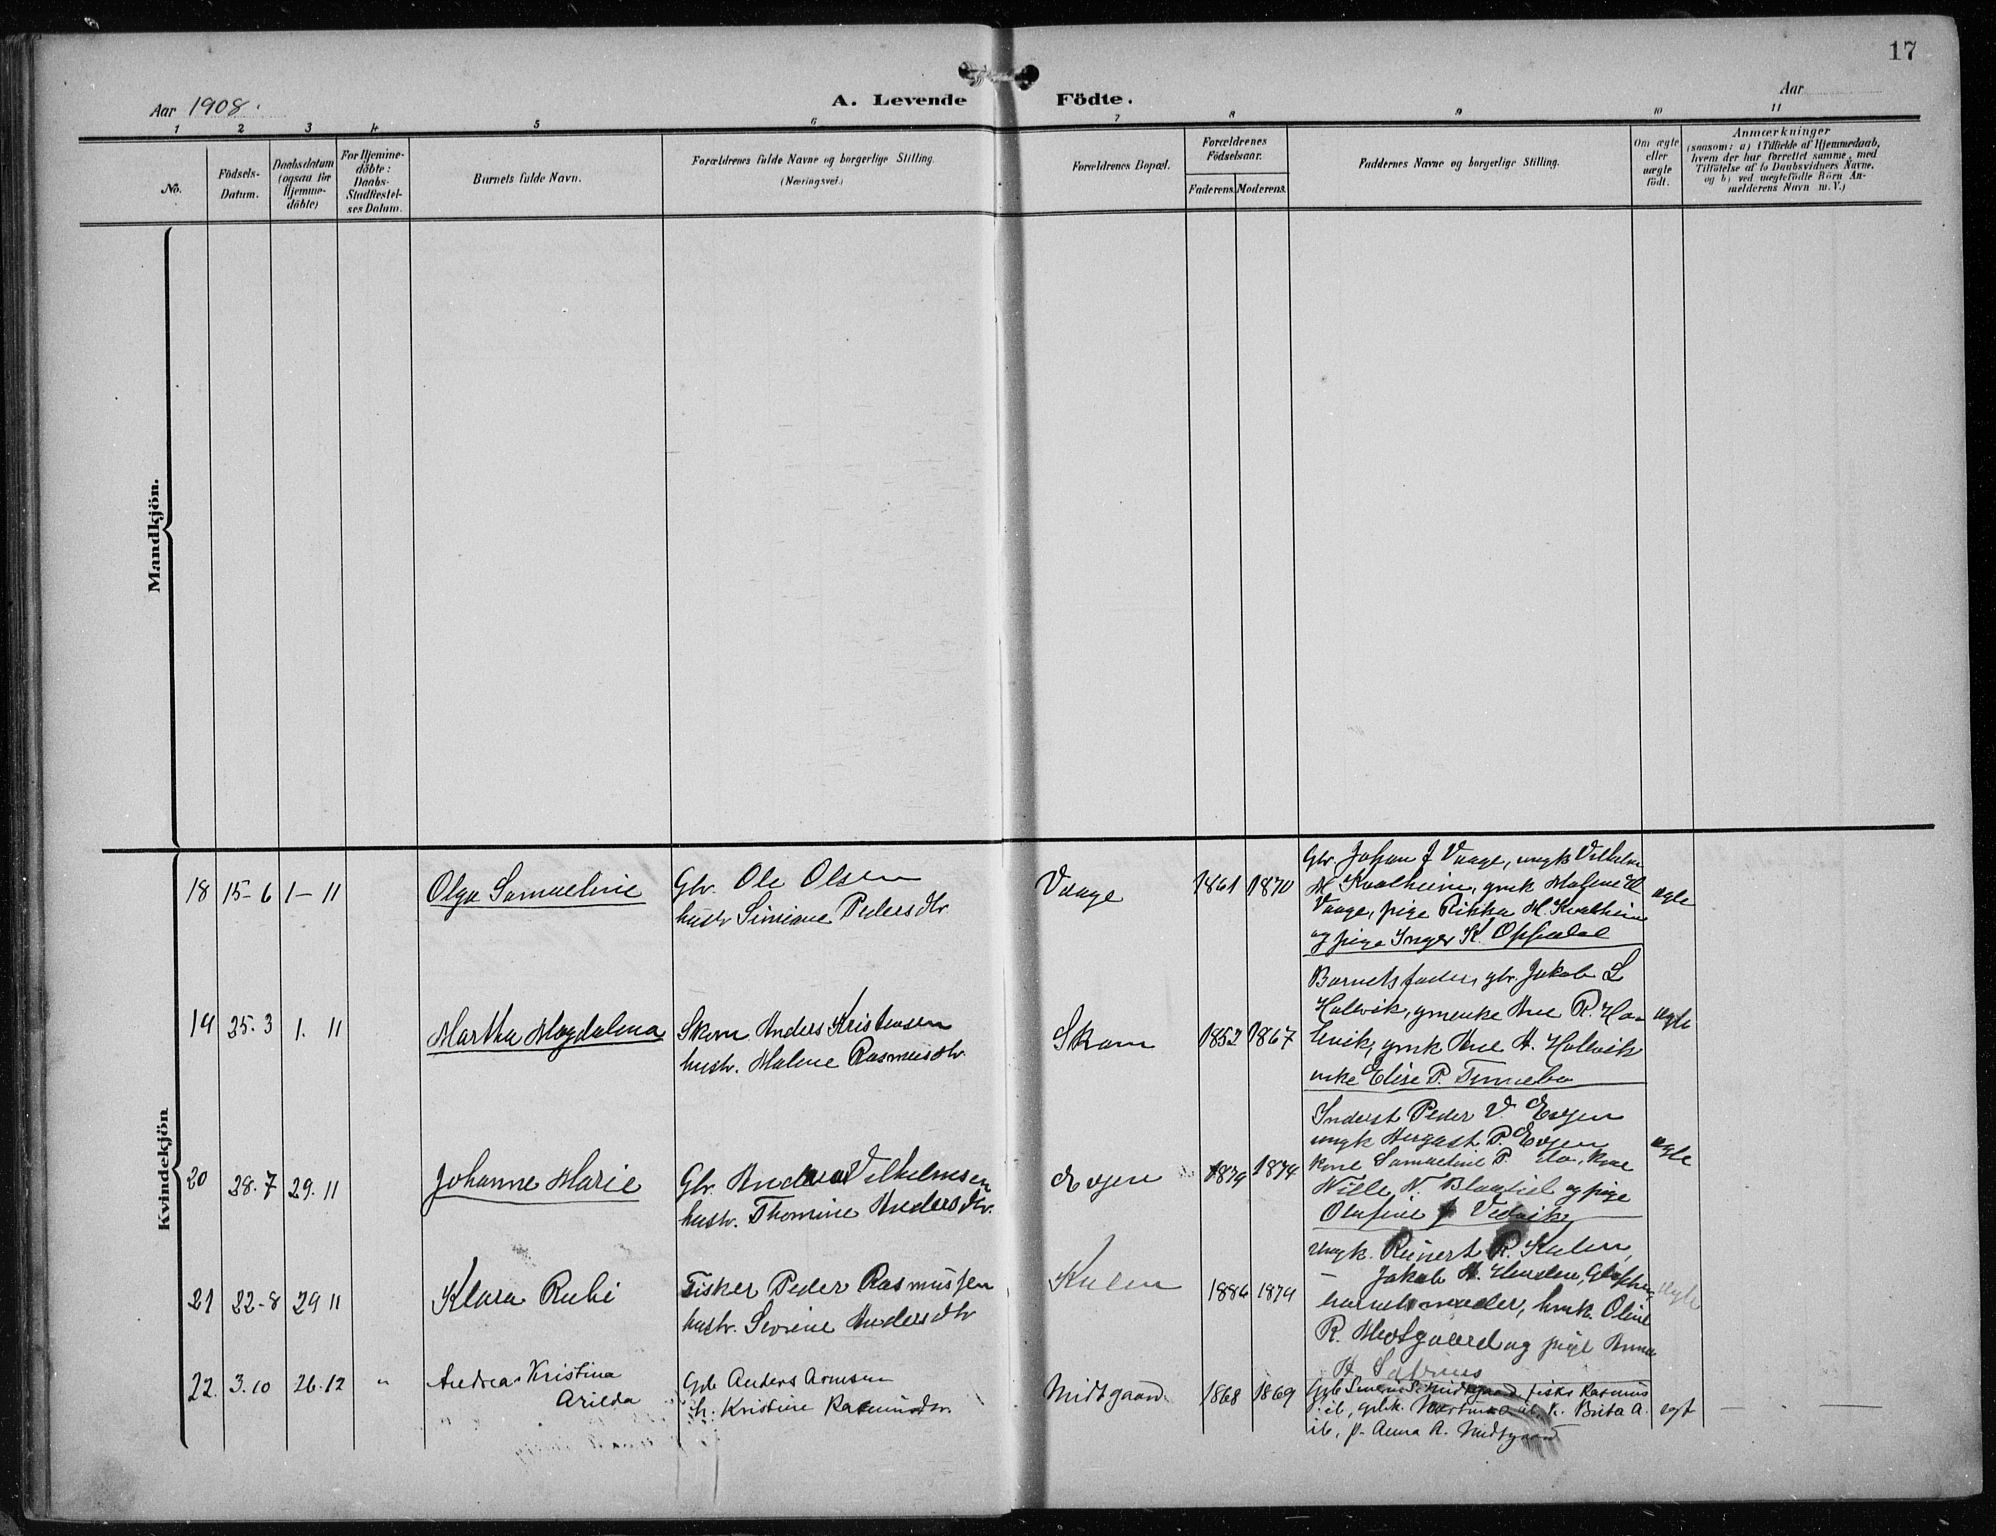 17
Aar 1908.
A. Levende Födte.
Aar
1 2 3 4 5 6 7 8 9 10 11
No.
Födsels-
Datum.
Daabsdatum
(ogsaa for
Hjemme-
döbte)
For Hjemme-
döbte:
Daabs-
Stadfæstel-
ses Datum.
Barnets fulde Navn.
Forældrenes fulde Navne og borgerlige Stilling.
(Næringsvei.)
Forældrenes Bopæl.
Forældrenes
Födselsaar.
Faderens.
Moderens.
Faddernes Navne og borgerlige Stilling.
Om ægte
eller
uægte
födt.
Anmærkninger
(saasom: a) i Tilfælde af Hjemmedaab,
hvem der har forrettet samme, med
Tilföielse af to Daabsvidners Navne.
og b) ved uægtefödte Börn An-
melderens Navn m. V.)
Mandkjön.
Kvindekjön
18 15-6 1-11
Olga Samueline
Gbr. Ole Olsen
hustr. Simiane Pedersdtr
Vaage
1861 1870
Gbr. Johan J Vaage, ungk Vilhelm
M Kvalheim, gmk Malene
Vaage, pige Rikka M. Kvalheim
og pige Inger K. Oppedal
ægte
19 25.3 1. 11
Martha Magdalena
Skom Anders Kristensen
hustr. Malene Rasmusdtr.
Skram
1852 1867
Barnets fader, gbr. Jakob L
Halvik, gmenke Ane R. Ha-
levik, gmk Ane A. Halevik
enke Elise P.
ægte
20 28.7 29.11
Johanne Marie
Gbr. Andreas Vilhelmsen
hustr. Thomine Andersdtr.
Evjen
1879 1874
Inderst Peder V. Evjen
ungk P. Evjen
kone Samueline P. do, kone
N. og pige
Olufine J Vedvik
ægte
21 22-8 29 11
Klara Rubi
Fisker Peder Rasmussen
hustr. Severine Andersdtr
Kulen
1886 1874
Ungk. Reinert R. Kulen,
- Jakob H.
barnets moder, hmk. Oline
R. Medtgaard og pige Anna
ægte
22 3.10 26.12 "
Andrea Kristina
Arilda
Gbr Anders Arnesen
h. Kristine Rasmusdtr.
Midtgaard
1868 1869
Gbr Midtgaard, fisker Rasmus
ib, gbk. ib, k. Brita A.
ib, p. Anna A. Midtgaard
ægt